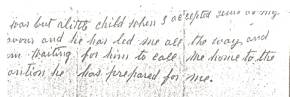 was but a little child when I accepted Jesus as my
avour and he has led me all the way and
am waiting for him to call me home to the
he has prepared for me.